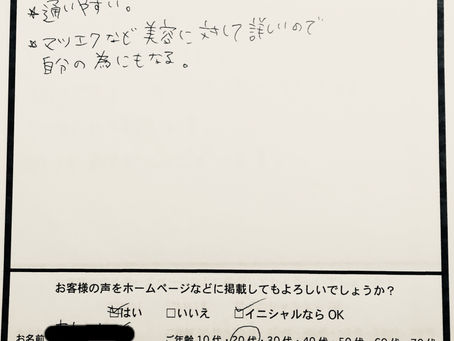 *通いやすい。
*マツエクなど美容に対して詳しいので
自分の為にもなる。
お客様の声をホームページなどに掲載してもよろしいでしょうか？
☑はい □いいえ ☑イニシャルなら OK
お名前 ご年齢 10代・20代・30代・40代・50代・60代・70代